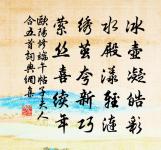 冰壺凝皓彩
水殿漾輕漣
綉茧夸新巧
縈絲喜續年
歐陽修端午帖子夫人
合五首詞典網集